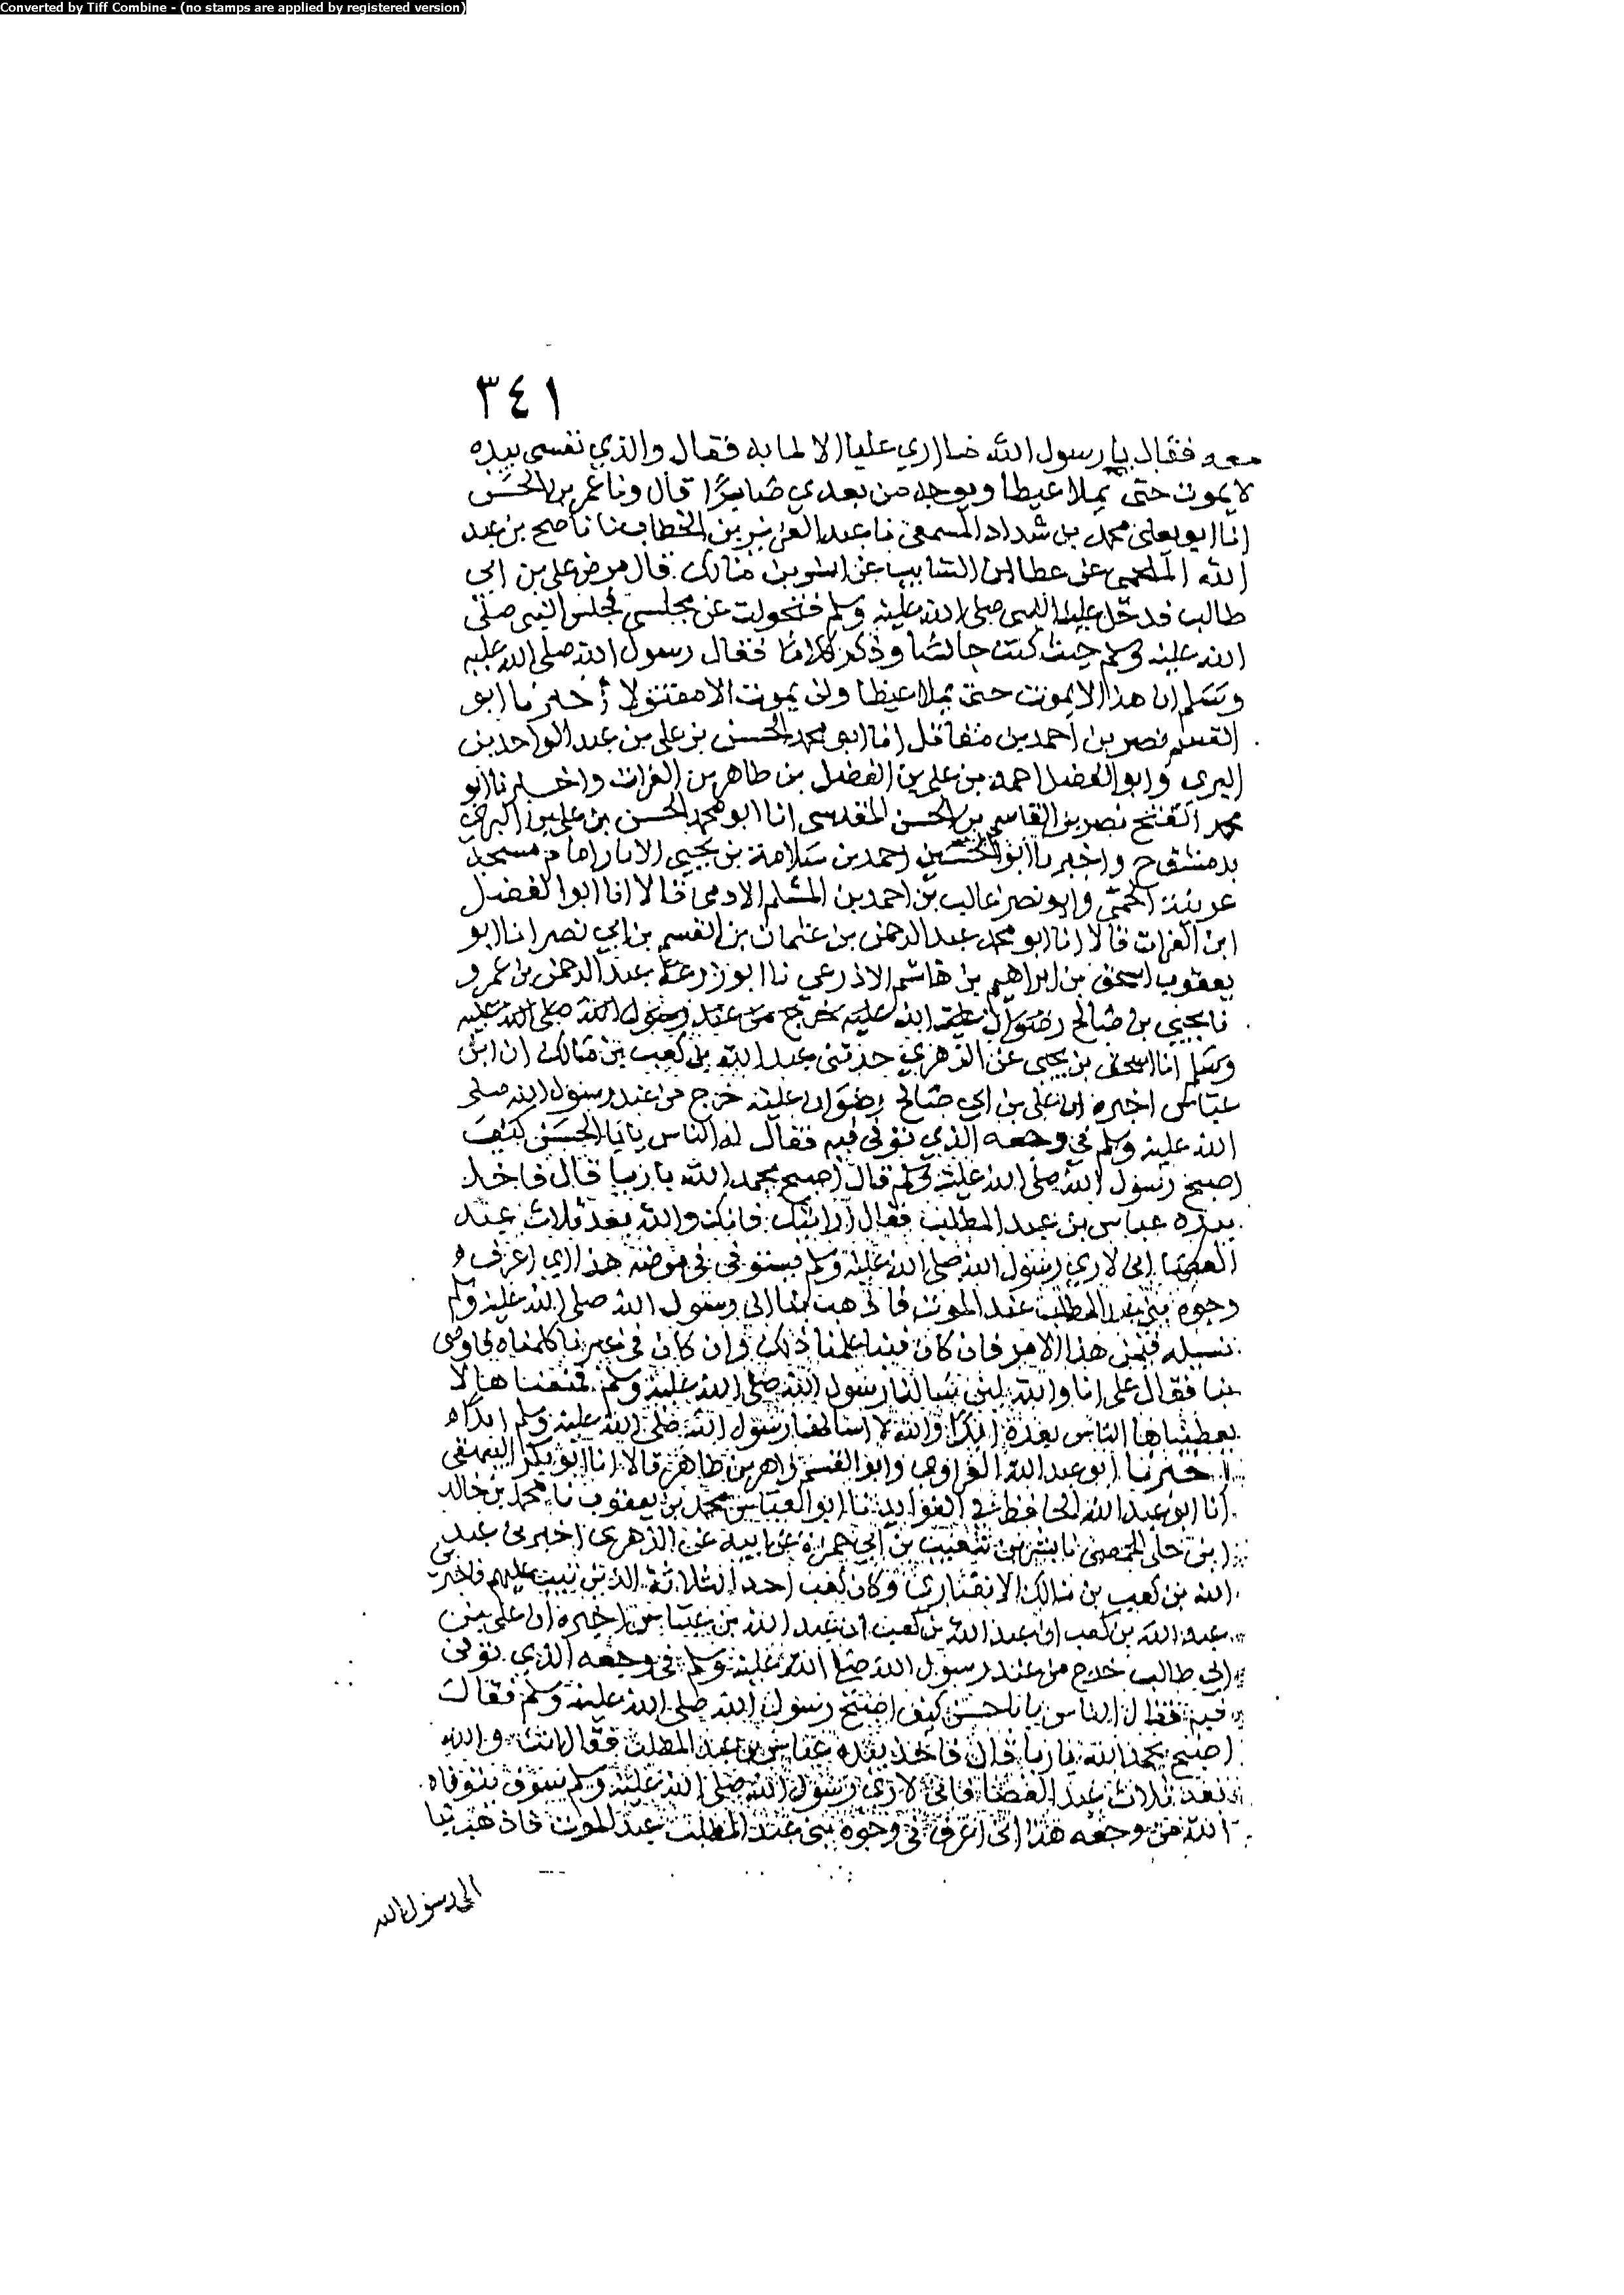 Converted by Tiff Combine - (no stamps are applied by registered version)
٣٤١
معه فقال يا رسول الله ما اري عليا الا لما به فقال والذي نفسي بيده
لا يموت حتى يملا غيظا ويوجد من بعدي صابرا قال ونا عمر بن الحسن
انا ابو يعلى محمد بن شداد المسمعي نا عبد العزيز بن الخطاب نا ناصح بن عبد
الله المحلمي عن عطا بن السايب عن انس بن مالك قال مرض علي بن ابي
طالب فدخل عليه النبي صلى الله عليه وسلم فتحولت عن مجلسي فجلس النبي صلى
الله عليه وسلم حيث كنت جالسا وذكر كلاما فقال رسول الله صلى الله عليه
وسلم ان هذا لا يموت حتى يملا غيظا ولن يموت الا مقتولا أخبرنا ابو
القسم نصر بن احمد بن مقاتل انا ابو محمد الحسن بن علي بن عبد الواحد بن
البري وابو الفضل احمد بن علي بن الفضل بن طاهر بن الفرات واخبرنا ابو
محمد الفتح نصر بن القاسم بن الحسن المقدسي انا ابو محمد الحسن بن علي بن البري
بدمشق ح واخبرنا ابو الحسين احمد بن سلامة بن يحيى الابار امام مسجد
عربية الحمى وابو نصر غالب بن احمد بن المسلم الادمي قالا انا ابو الفضل
ابن الفرات قالا انا ابو محمد عبد الرحمن بن عثمان بن القسم بن ابي نصر انا ابو
يعقوب اسحق بن ابراهيم بن هاشم الاذرعي نا ابو زرعة عبد الرحمن بن عمرو
نا يحيي بن صالح عليه خرج من عند رسول الله صلى الله عليه
وسلم انا اسحق بن يحيى عن الزهري حدثني عبد الله بن كعب بن مالك ان ابن
عباس اخبره ان علي بن ابي صالح رضوان عليه خرج من عند رسول الله صلى
الله عليه وسلم في وجعه الذي توفى فيه فقال له الناس يا با الحسن كيف
اصبح رسول الله صلى الله عليه وسلم قال اصبح بحمد الله بارئا قال فاخذ
بيده عباس بن عبد المطلب فقال ارايتك فانك والله بعد ثلاث عبد
العصا اني لاري رسول الله صلى الله عليه وسلم فيستوفى في مرضه هذا اني اعرف
وجوه بني عبد المطلب عند الموت فاذهب بنا الى رسول الله صلى الله عليه وسلم
نسيله فيمن هذا الامر فان كان فينا علمنا ذلك وان كان في غيرنا كلمناه فاوصى
بنا فقال علي انا والله لين سالنا رسول الله صلى الله عليه وسلم فمنعناها لا
يعطيناها الناس بعده ابدا والله لا اسالها رسول الله صلى الله عليه وسلم ابدا ه
اخبرنا ابو عبد الله الفراوي وابو القسم زاهر بن طاهر قالا انا ابو بكر البيهقي
انا ابو عبد الله الحافظ في الفوايد نا ابو العباس محمد بن يعقوب نا محمد بن خالد
ابن خلي الحمصي نا بشر بن شعيب بن ابي حمزة عن ابيه عن الزهري اخبرني عبد
الله بن كعب بن مالك الانصاري وكان كعب احد الثلاثة الذين تيب عليهم فاخبرني
عبد الله بن كعب ان عبد الله بن كعب ان عبد الله بن عباس اخبره ان علي بن
ابي طالب خرج من عند رسول الله صلى الله عليه وسلم في وجعه الذي توفى
فيه فقال الناس يا با حسن كيف اصبح رسول الله صلى الله عليه وسلم فقال
اصبح بحمد الله بارئا قال فاخذ بيده عباس بن عبد المطلب فقال انت والله
بعد ثلاث عبد العصا فاني لاري رسول الله صلى الله عليه وسلم سوف يتوفاه
الله من وجعه هذا اني اعرف في وجوه بني عبد المطلب عند الموت فاذهب بنا
الى رسول الله